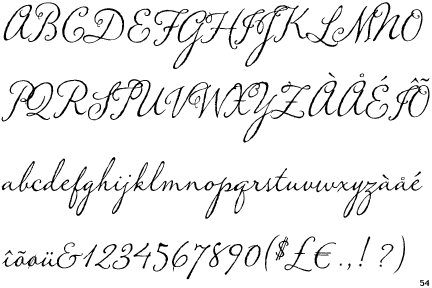 ABCDEFGHIJKLMNO
PQRSTUVWXYZÀÅÉÎÕ
abcdefghijklmnopqrstuvwxyzàåé
îõøü&1234567890($£€.,!?)
54